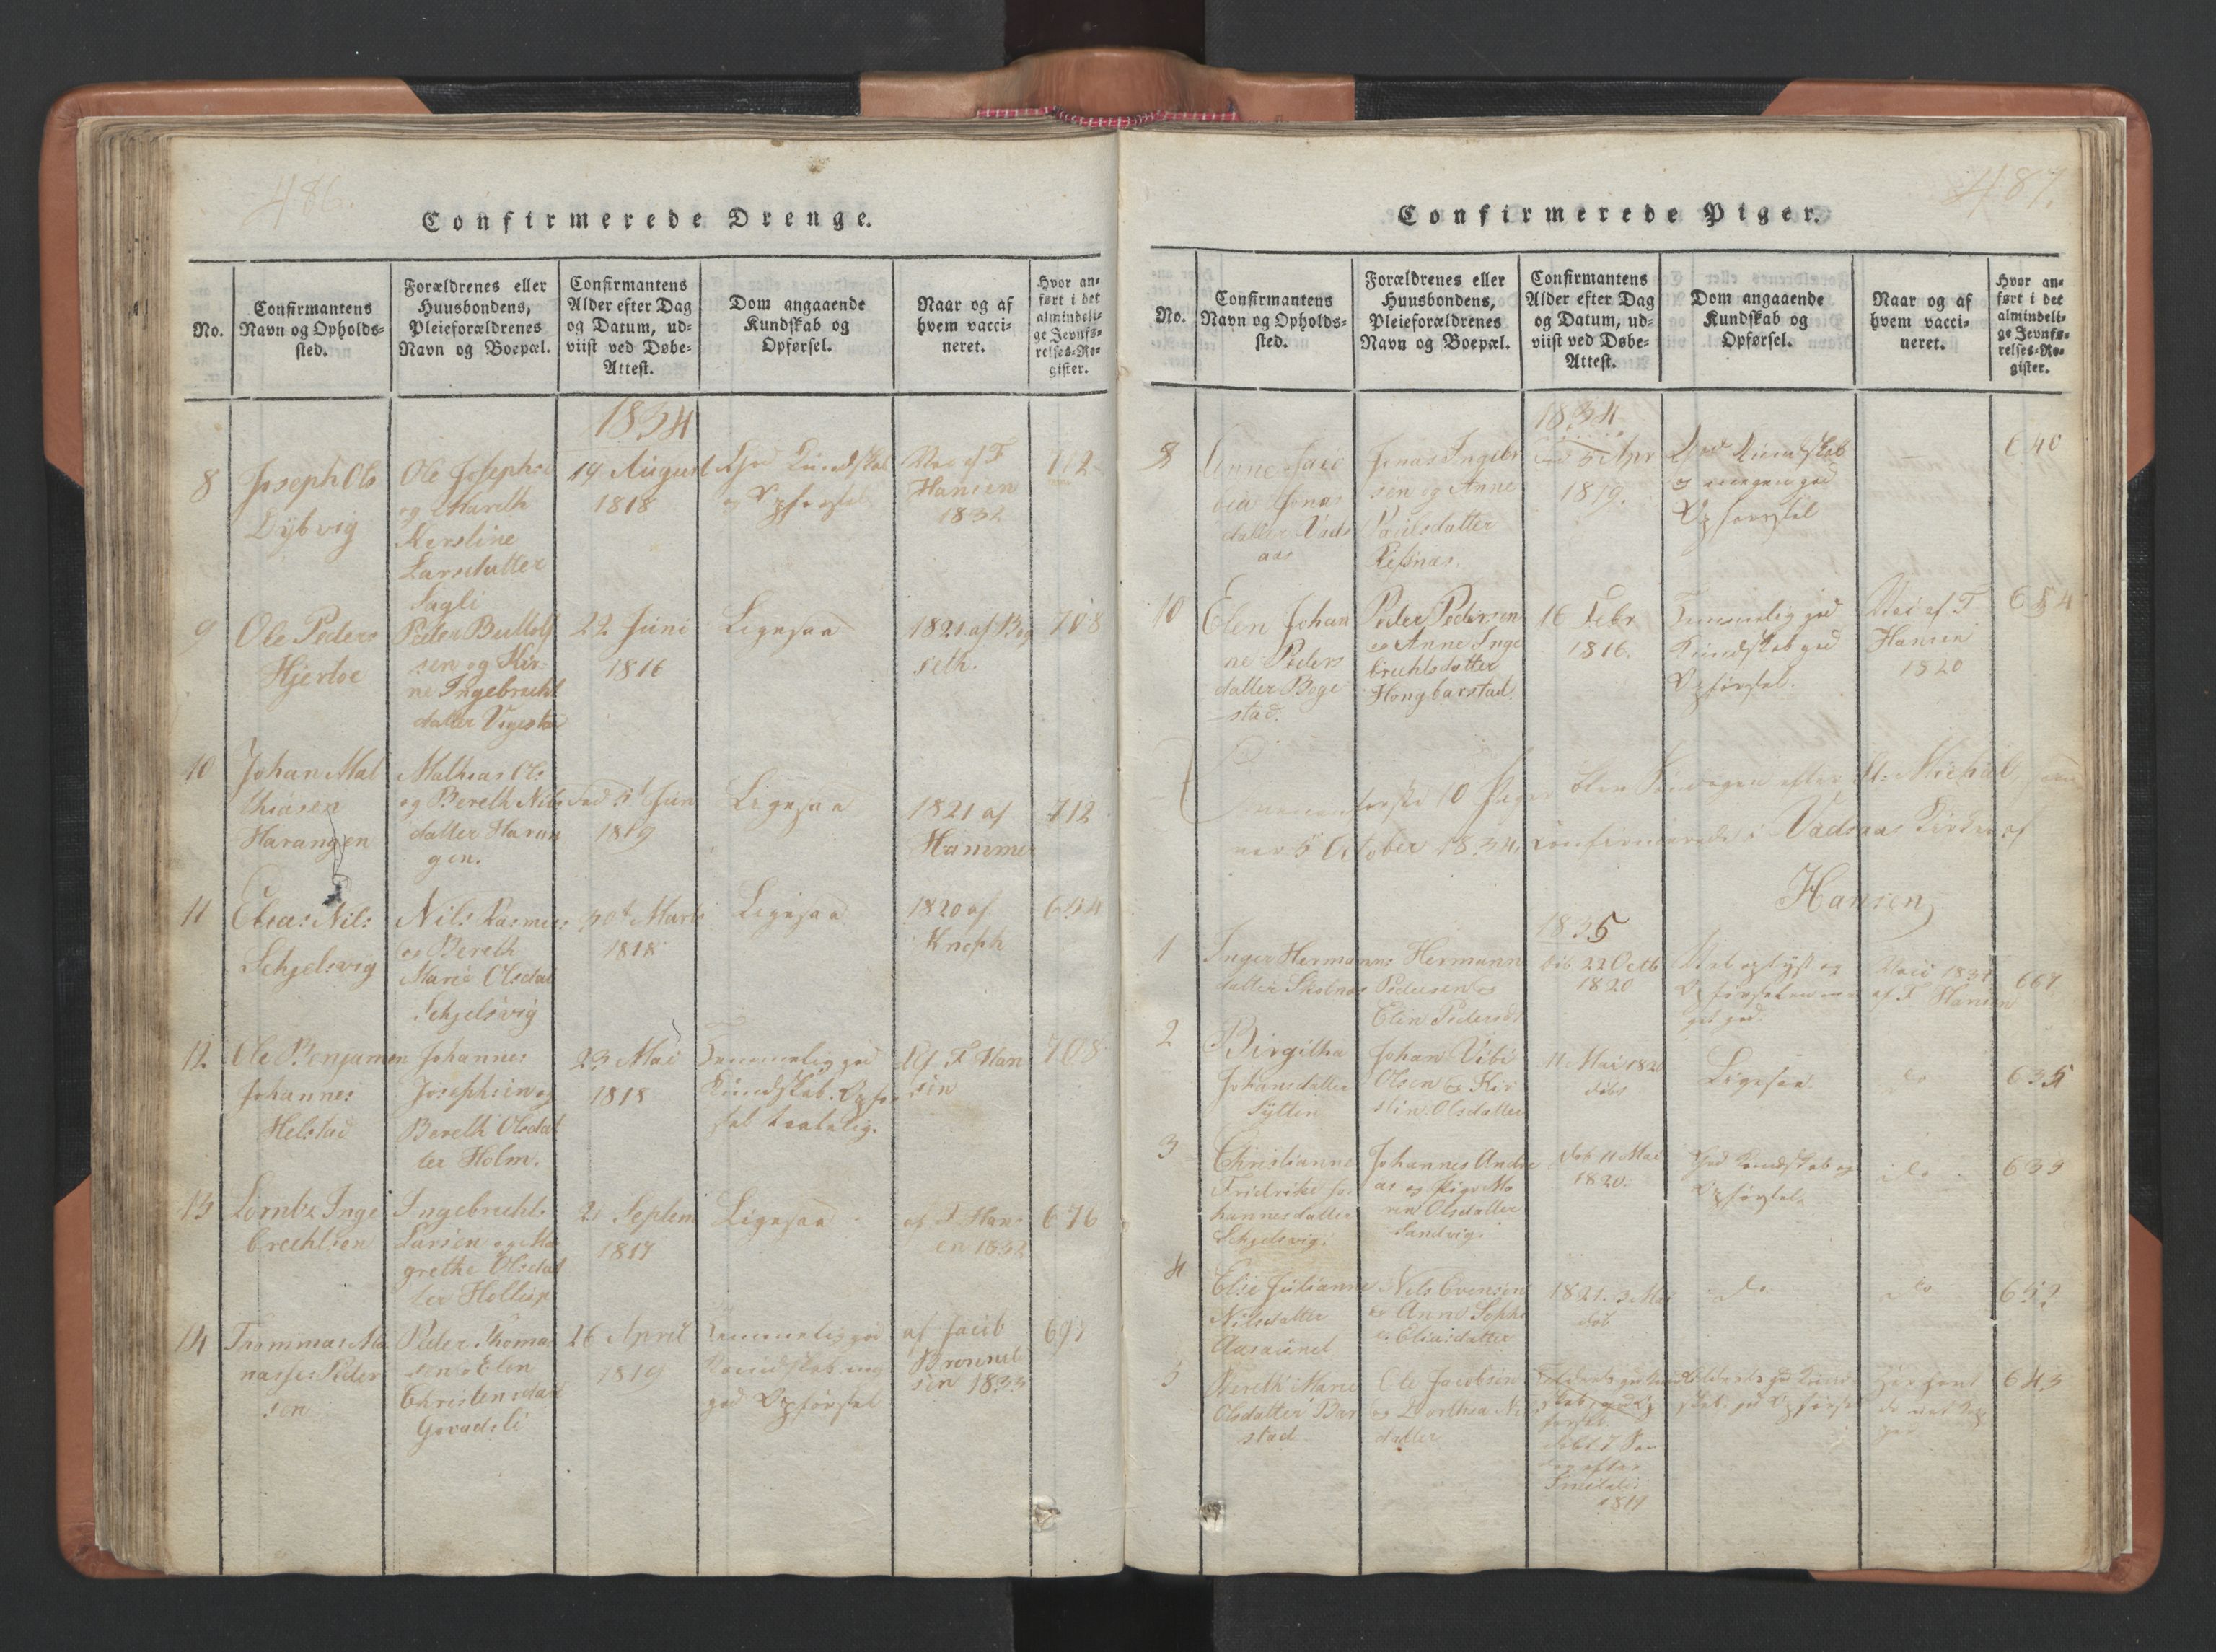 486.
Confirmerede Drenge.
No.
Confirmantens
Navn og Opholds-
sted.
Forældrenes eller
Huusbondens,
Pleieforældrenes
Navn og Boepæl.
Confirmantens
Alder efter Dag
og Datum, ud-
viist ved Døbe-
Attest.
Dom angaaende
Kundskab og
Opførsel.
Naar og af
hvem vacci-
neret.
Hvor an-
ført i det
almindeli-
ge Jevnfø-
relses-Re-
gister.
1834
8
Joseph Ols
Dybvig
Ole Josephs
og Mareth
Kerstine
Larsdatter
Sagli
19 August
1818
God Kundskab
og Opførsel
af F
Hansen
1832
712
9
Ole Peders
Hjertøe
Peder Bullolf
sen og Kir-
ne Ingebrecht
datter Vegsta
22 Juni
1816
Ligesaa
1821 af
708
10
Johan Mat
thiasen
Harangen
Mathias Ols
og Bereth Nils
datter Haran
gen.
Jun
1819
Ligesaa
1821 af
Hammer
712
11
Elias Nils
Schjelsvig
Nils Rasmus
og Bereth
Marie Olsdat
Schjelsvig
30t Marts
1818
Ligesaa
1820 af
Knoph
654
12
Ole Benjamen
Johannes
Helstad
Johannes
Josephsen og
Bereth Olsdat
ter Holm.
23 Mai
1818
Temmelig god
Kundskab. Opfør
sel
Af F Han
sen
708
13
Lorntz Inge
brechtsen
Ingebrecht
Larsen og Ma
grethe Olsdat
ter
21 Septem
1817
Ligesaa
af F Han
en 1832
676
14
Thommas Ma
nasses Peder
sen
Peder Thomas
sen Elen
Christensdat
26 April
1819
Temmelig god
Kundskab
god Opførsel
af Jacob
sen 1833
487.
Confirmerede Piger.
No.
Confirmantens
Navn og Opholds-
sted.
Forældrenes eller
Huusbondens,
Pleieforældrenes
Navn og Boepæl.
Confirmantens
Alder efter Dag
og Datum, ud-
viist ved Døbe-
Attest.
Dom angaaende
Kundskab og
Opførsel.
Naar og af
hvem vacci-
neret.
Hvor an-
ført i det
almindeli-
ge Jevnfø-
relses-Re-
gister.
1834
Anne
Jonas
datter Vads
aas
Jonas Ingebr
sen og Anne
Paulsdatter
Refsnæs.
5 Apr
1819.
God Kundskab
og megen god
Opførsel
640
10
Elen Johan
ne Peders
datter Boge
stad.
Peder Pedersen
og Anne Inge
brechtsdatter
Hongbarstad
16 Febr
1816.
Temmelig god
Kundskab god
Opførsel.
Mai af F
Hansen
1820
654
10 Piger blev Søndagen efter St: Michal
5 October 1834. confirmerede i Vadsaa Kirke af
Hansen
1835
1
Inger Hermanns
datter Skolnæs
Hermann
Pedersen og
Elen Pedersd
Døb 22 Octb
1820
1834
af F Hansen
667
2
Birgitha
Johansdatter
Sylten
Johan Vibe
Olsen og Kir
stin Olsdatter
11 Mai 1820
døbt
Ligesaa
do
635
3
Christianne
Fridrike Jo
hannesdatter
Schjelsvig.
Johannes Andre
as og Pige Ma
ren Olsdatter
Sandvig.
døb 11 Mai
1820.
God Kundskab og
Opførsel
do
639
4
Else Julianne
Nilsdatter
Aasaunet
Nils Evensen
og Anne Sophi
e Eliasdatter
1821. 3 Mai
døb
do
do
652
5
Bereth Marie
Olsdatter Bar
stad
Ole Jacobsen
og Dorthea Ni
datter
døbt 7 Søn
dag efter
Trinitatis
1819
god Kund-
skab. god Opførsel
643